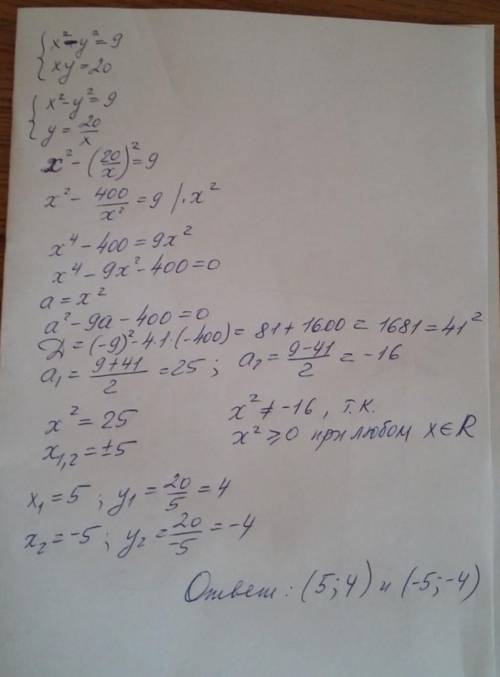 { x² - y² = 9
xy = 20
{ x² - y² = 9
y = 20/x
x² - (20/x)² = 9
x² - 400/x² = 9 | · x²
x⁴ - 400 = 9x²
x⁴ - 9x² - 400 = 0
a = x²
a² - 9a - 400 = 0
D = (-9)² - 4·1·(-400) = 81 + 1600 = 1681 = 41²
a₁ = (9+41)/2 = 25 ; a₂ = (9-41)/2 = -16
x² = 25 x² ≠ -16 , т.к.
x₁,₂ = ±5 x² ⩾ 0 при любом x ∈ R
x₁ = 5 ; y₁ = 20/5 = 4
x₂ = -5 ; y₂ = 20/-5 = -4
Ответ: (5;4) и (-5;-4)